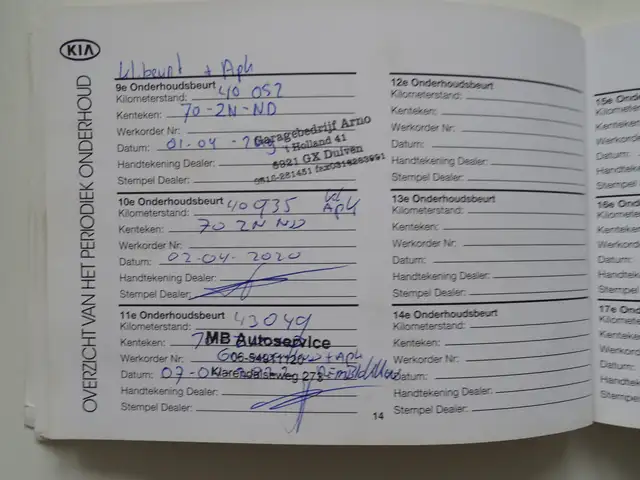 KIA
OVERZICHT VAN HET PERIODIEK ONDERHOUD
kl beurt + Apk
9e Onderhoudsbeurt
Kilometerstand: 40 052
Kenteken: 70-ZN-ND
Werkorder Nr:
Datum: 01-04-
Handtekening Dealer:
Stempel Dealer:
Garagebedrijf Arno
't Holland 41
6921 GX Duiven
10e Onderhoudsbeurt
Kilometerstand: 40935 kl
Apk
Kenteken: 70 ZN ND
Werkorder Nr:
Datum: 02-04-2020
Handtekening Dealer:
Stempel Dealer:
11e Onderhoudsbeurt
Kilometerstand: 43049
Kenteken:
Werkorder Nr: + Apk
Datum: 07-
Handtekening Dealer:
Stempel Dealer:
MB Autoservice
Klarendalseweg 273
12e Onderhoudsbeurt
Kilometerstand:
Kenteken:
Werkorder Nr:
Datum:
Handtekening Dealer:
Stempel Dealer:
13e Onderhoudsbeurt
Kilometerstand:
Kenteken:
Werkorder Nr:
Datum:
Handtekening Dealer:
Stempel Dealer:
14e Onderhoudsbeurt
Kilometerstand:
Kenteken:
Werkorder Nr:
Datum:
Handtekening Dealer:
Stempel Dealer:
14
15e
Kilometer
Kenteken:
Werkorder
Datum:
Handteke
Stempel
16e
Kilomete
Kenteke
Werkor
Datum:
Handte
Stemp
17e
Kilom
Kente
Werk
Datu
Han
Ste